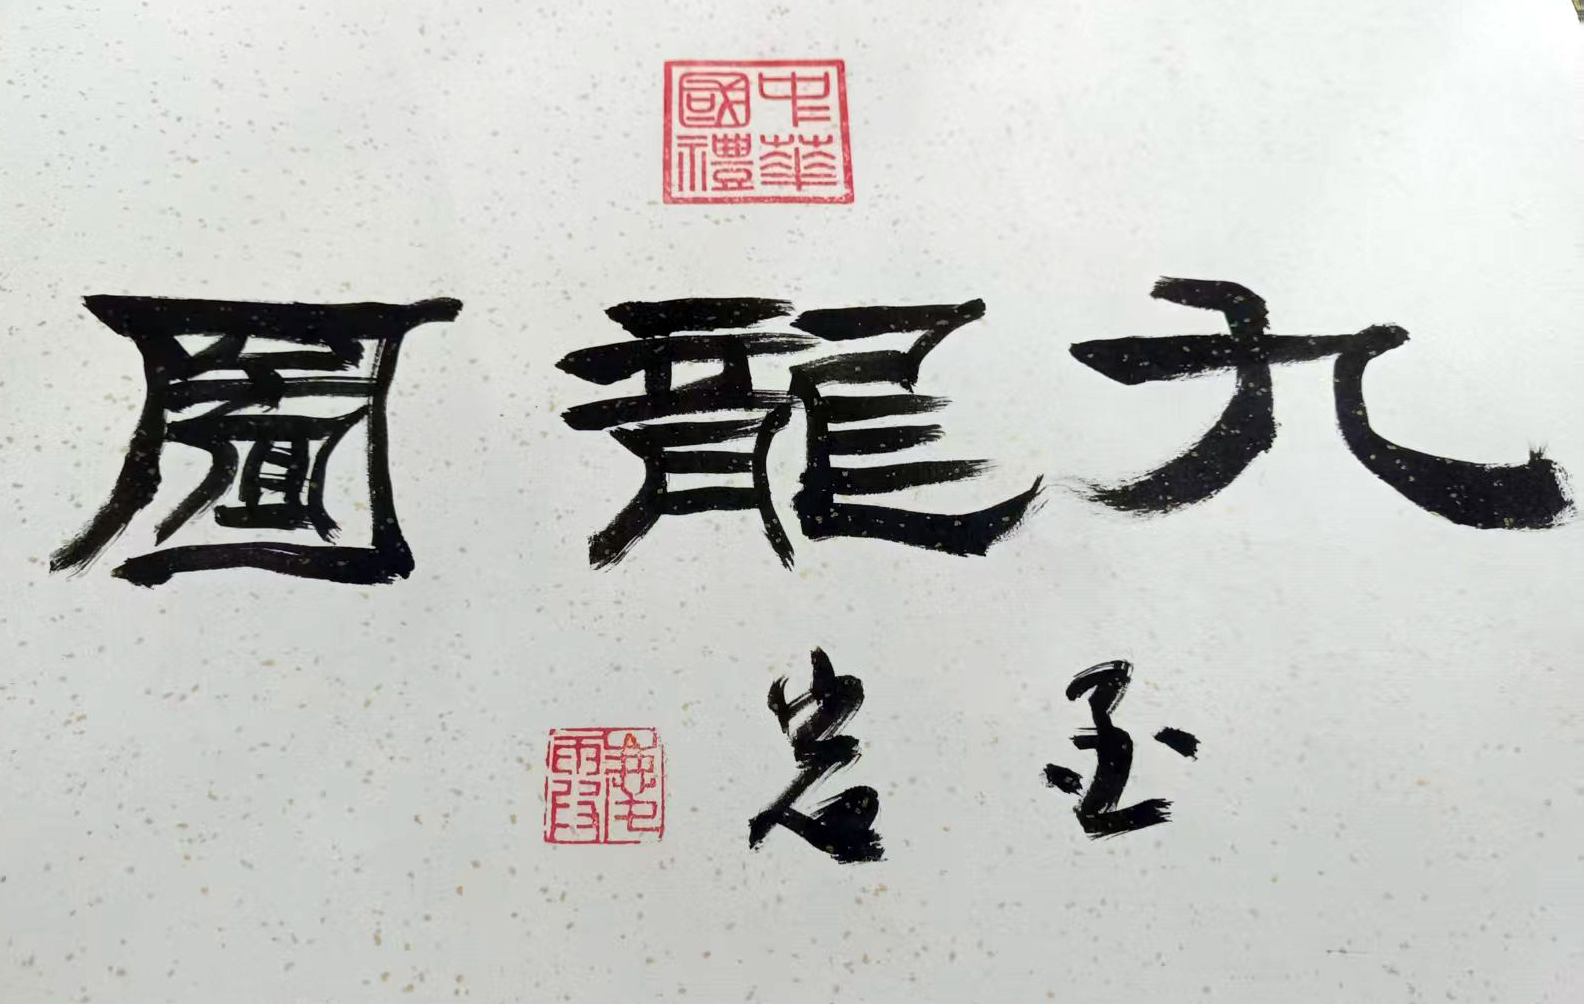 中華國禮
九龍圖
玉岩